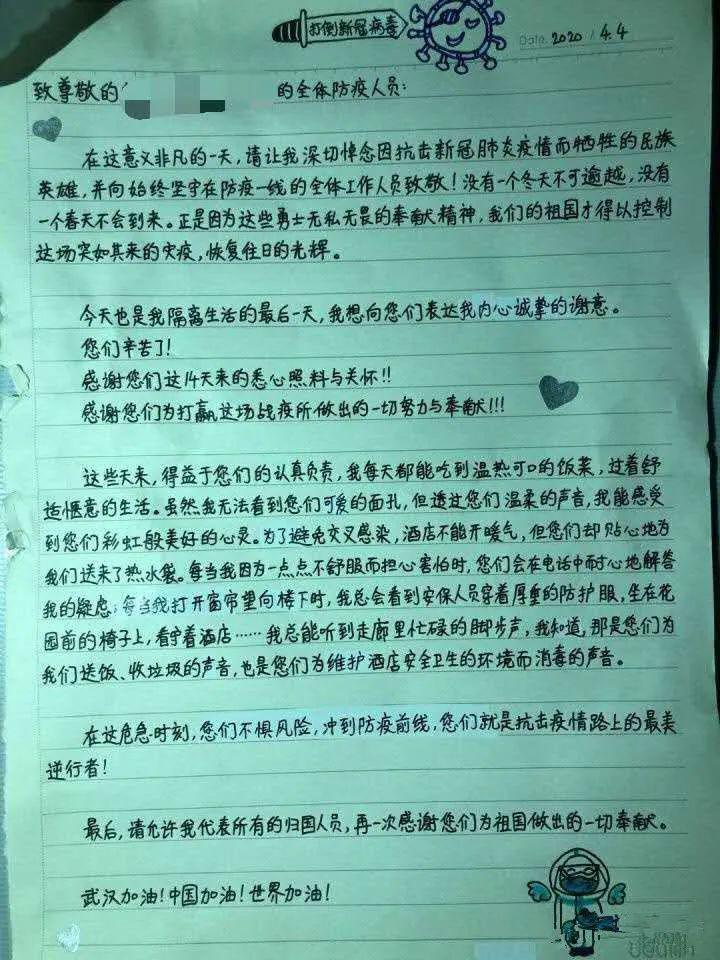 打倒新冠病毒
Date. 2020 / 4.4
致尊敬的
的全体防疫人员:
在这意义非凡的一天,请让我深切悼念因抗击新冠肺炎疫情而牺牲的民族
英雄,并向始终坚守在防疫一线的全体工作人员致敬!没有一个冬天不可逾越,没有
一个春天不会到来。正是因为这些勇士无私无畏的奉献精神,我们的祖国才得以控制
这场突如其来的灾疫,恢复往日的光辉。
今天也是我隔离生活的最后一天,我想向您们表达我内心诚挚的谢意。
您们辛苦了!
感谢您们这14天来的悉心照料与关怀!!
感谢您们为打赢这场战疫所做出的一切努力与奉献!!!
这些天来,得益于您们的认真负责,我每天都能吃到温热可口的饭菜,过着舒
适惬意的生活。虽然我无法看到您们可爱的面孔,但透过您们温柔的声音,我能感受
到您们彩虹般美好的心灵。为了避免交叉感染,酒店不能开暖气,但您们却贴心地为
我们送来了热水袋。每当我因为一点点不舒服而担心害怕时,您们会在电话中耐心地解答
我的疑虑;每当我打开窗帘望向楼下时,我总会看到安保人员穿着厚重的防护服,坐在花
园前的椅子上,看守着酒店……我总能听到走廊里忙碌的脚步声,我知道,那是您们为
我们送饭、收垃圾的声音,也是您们为维护酒店安全卫生的环境而消毒的声音。
在这危急时刻,您们不惧风险,冲到防疫前线,您们就是抗击疫情路上的最美
逆行者!
最后,请允许我代表所有的归国人员,再一次感谢您们为祖国做出的一切奉献。
武汉加油!中国加油!世界加油!